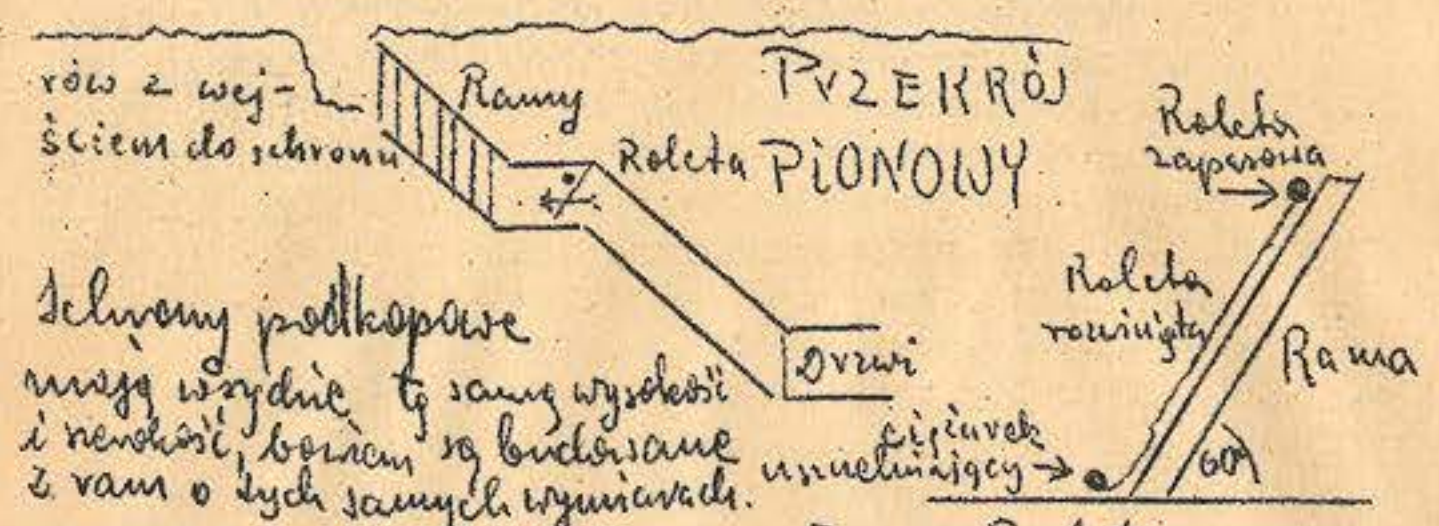 rów z wej-
ściem do schronu
Ramy
Roleta
PrZEKRÓJ
PiONOWY
Roleta
zapasowa
Roleta
rozwinięta
Rama
60°
Drzwi
ciężarek
uszczelniający
Schrony podkopowe
mają wszędzie tę samą wysokość
i szerokość, bowiem są budowane
z ram o tych samych wymiarach.